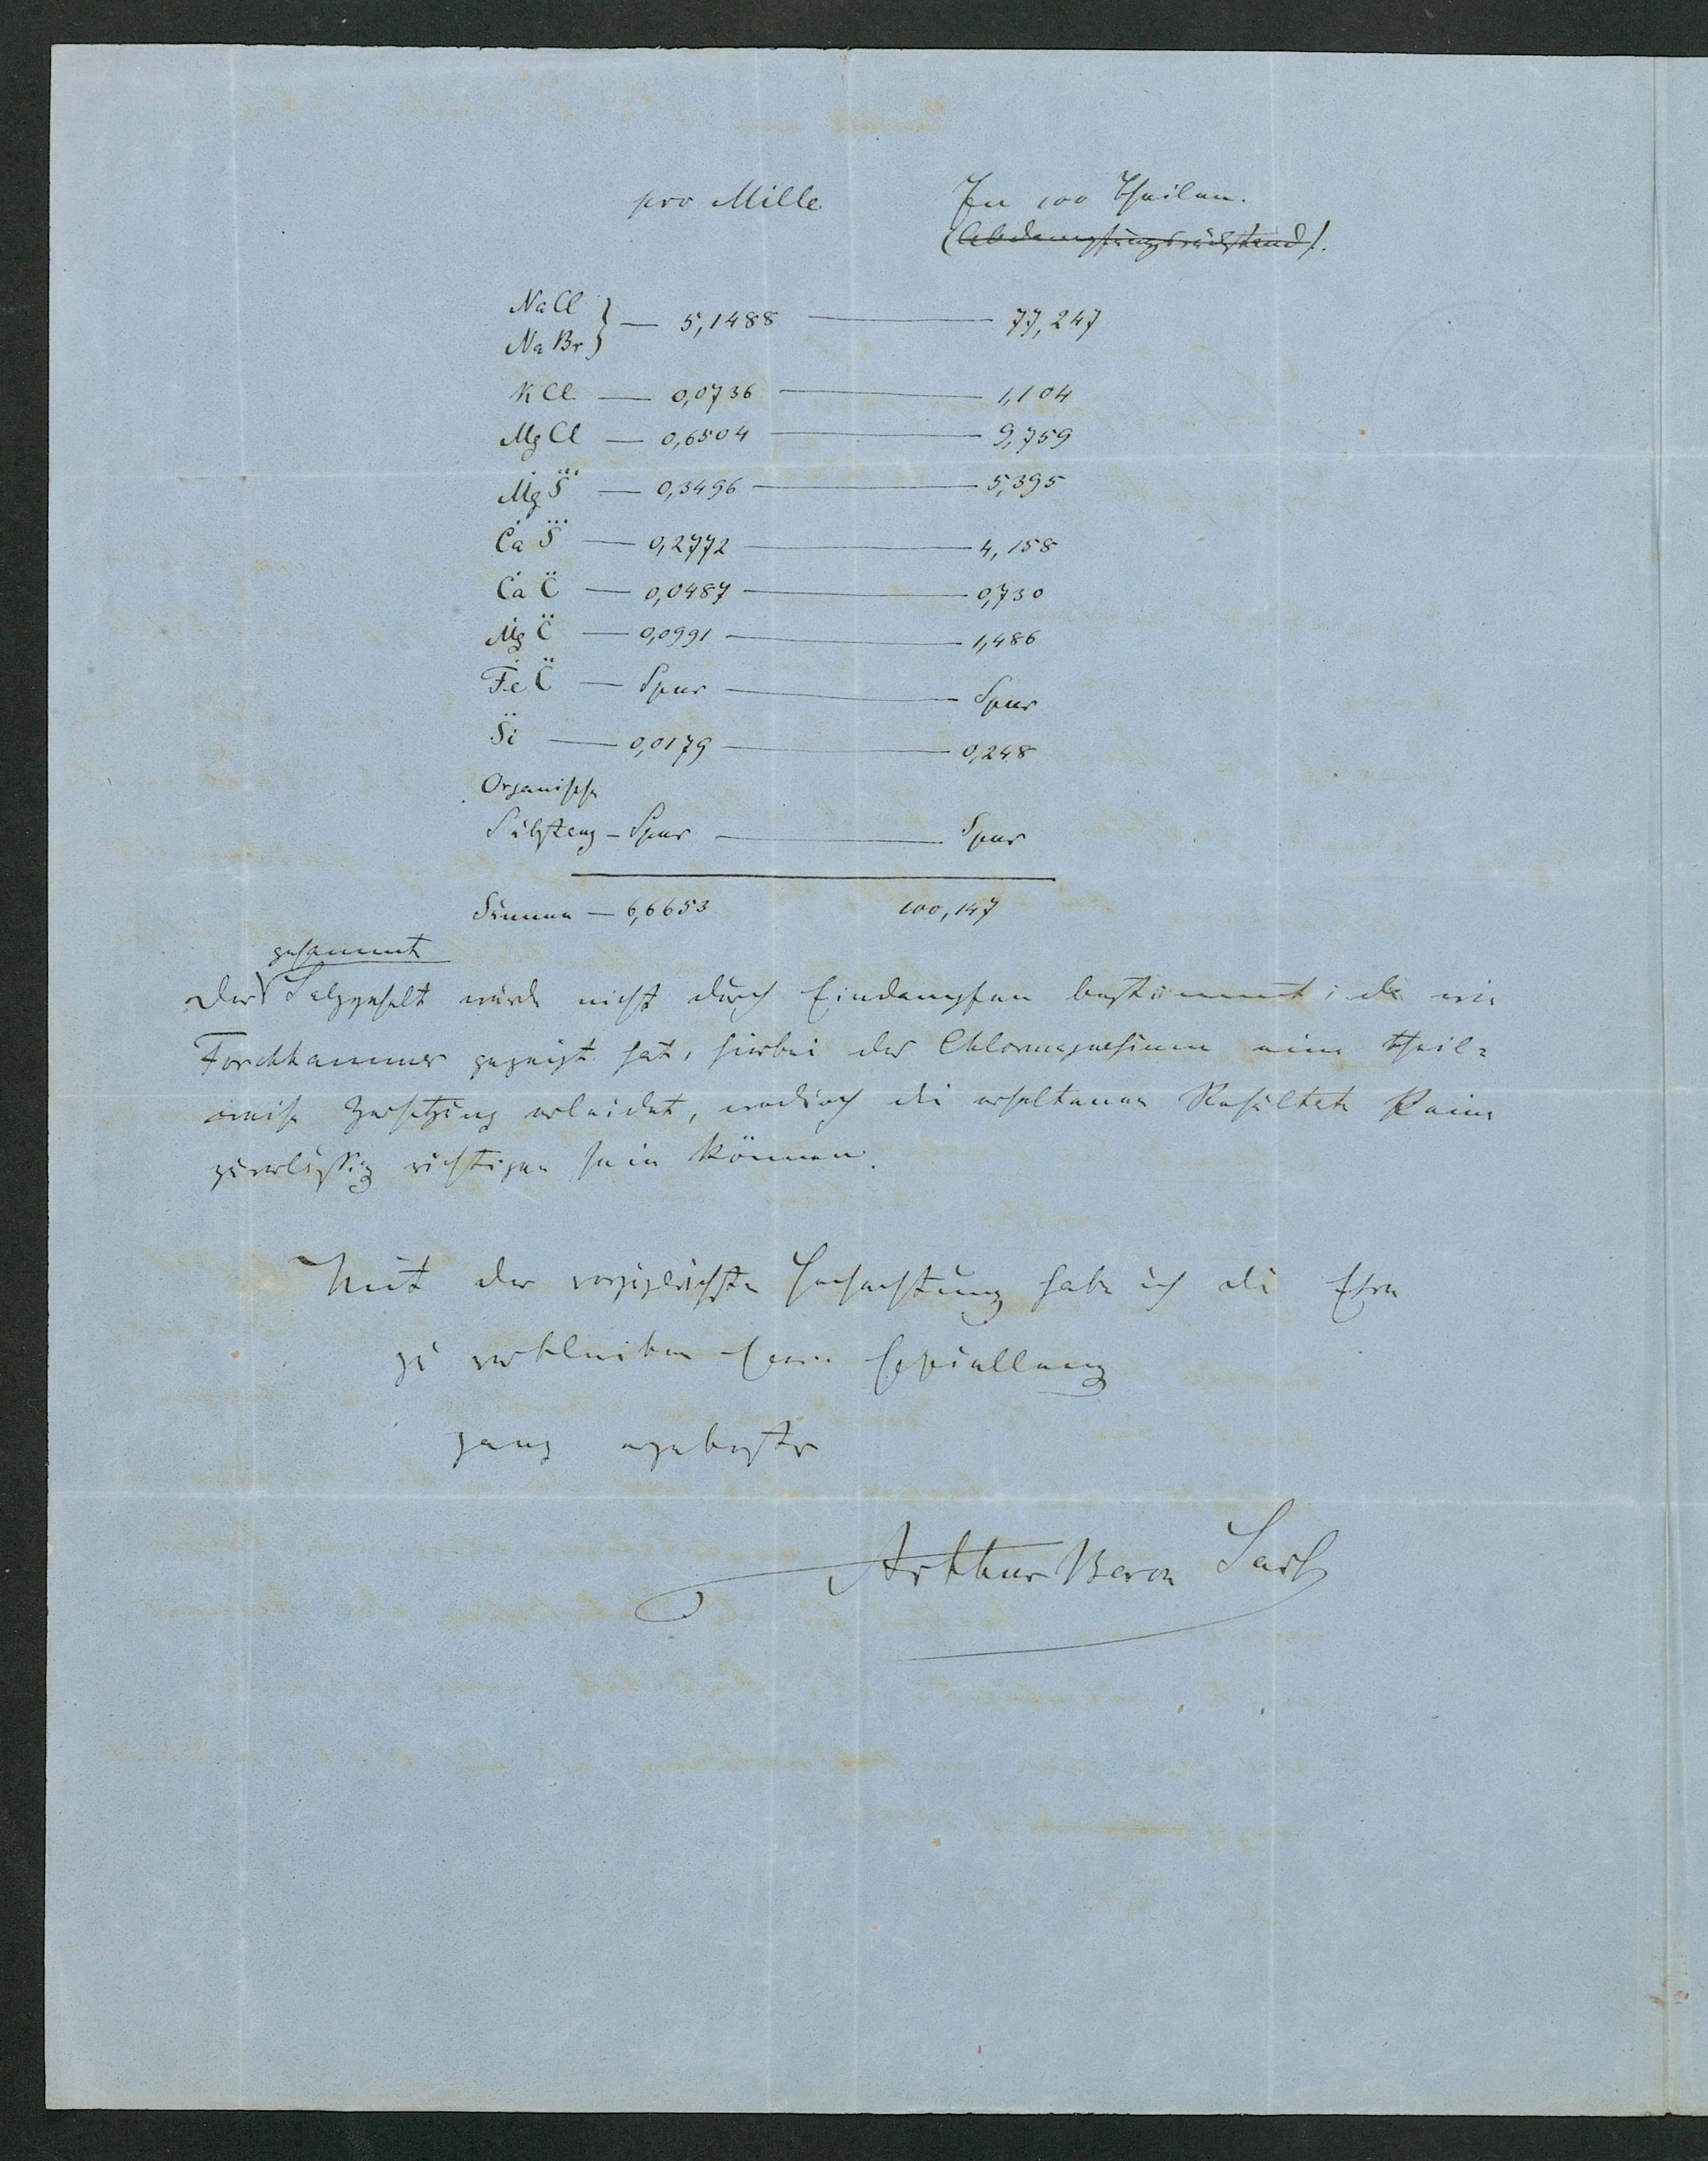 pro Mille In 100 Theilen.
(Abdampfungsrückstand).
NaCl
NaBr } — 5,1488 — 77,247
KCl — 0,0736 — 1,104
MgCl — 0,6504 — 9,759
Ṁg S⃛ — 0,3496 — 5,395
Ċa S⃛ — 0,2772 — 4,158
Ċa C̈ — 0,0487 — 0,730
Ṁg C̈ — 0,0991 — 1,486
Ḟe C̈ — Spur — Spur
S̈i — 0,0179 — 0,248
Organische
Substanz — Spur — Spur
Summa — 6,6653 100,147
gesammt
Der Salzgehalt wurde nicht durch Eindampfen bestimmt; da wie
Forchhammer gezeigt hat, hierbei das Chlormagnesium eine theil=
weise Zersetzung erleidet, wodurch die erhaltenen Resultate keine
zuverlässig richtigen sein können.
Mit der vorzüglichsten Hochachtung habe ich die Ehre
zu verbleiben
ganz ergebenster
Arthur Baron Sass